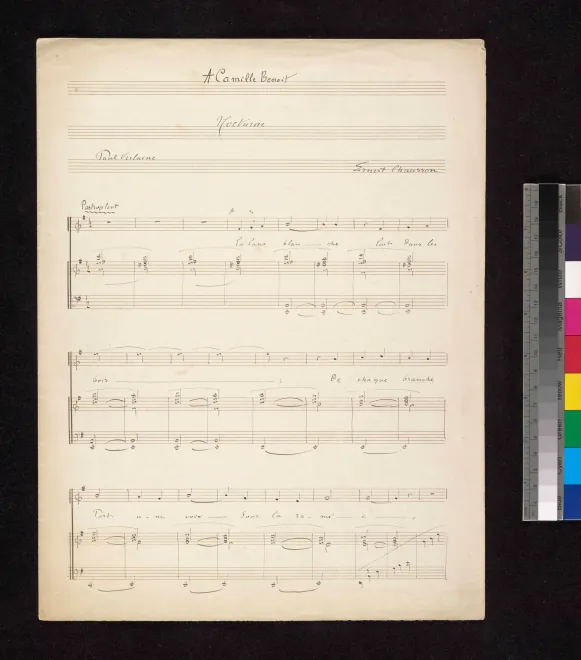 A Camille Benoit
Nocturne
Paul Verlaine
Ernest Chausson
Pas trop lent
La lune blan - che Luit dans les
bois ; De chaque branche
Part u - ne voix Sous la ra - mé - e